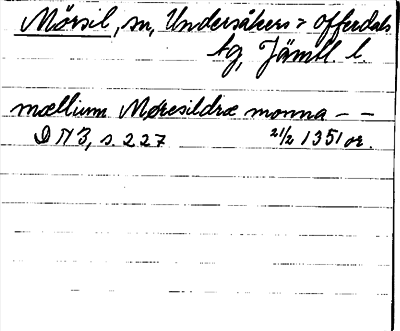 Mörsil, sn, Undersåkers o Offerdals
tg, Jämtl. l.
mællium Møresildræ monna - -
DN 3, s. 227 21/2 1351 or.